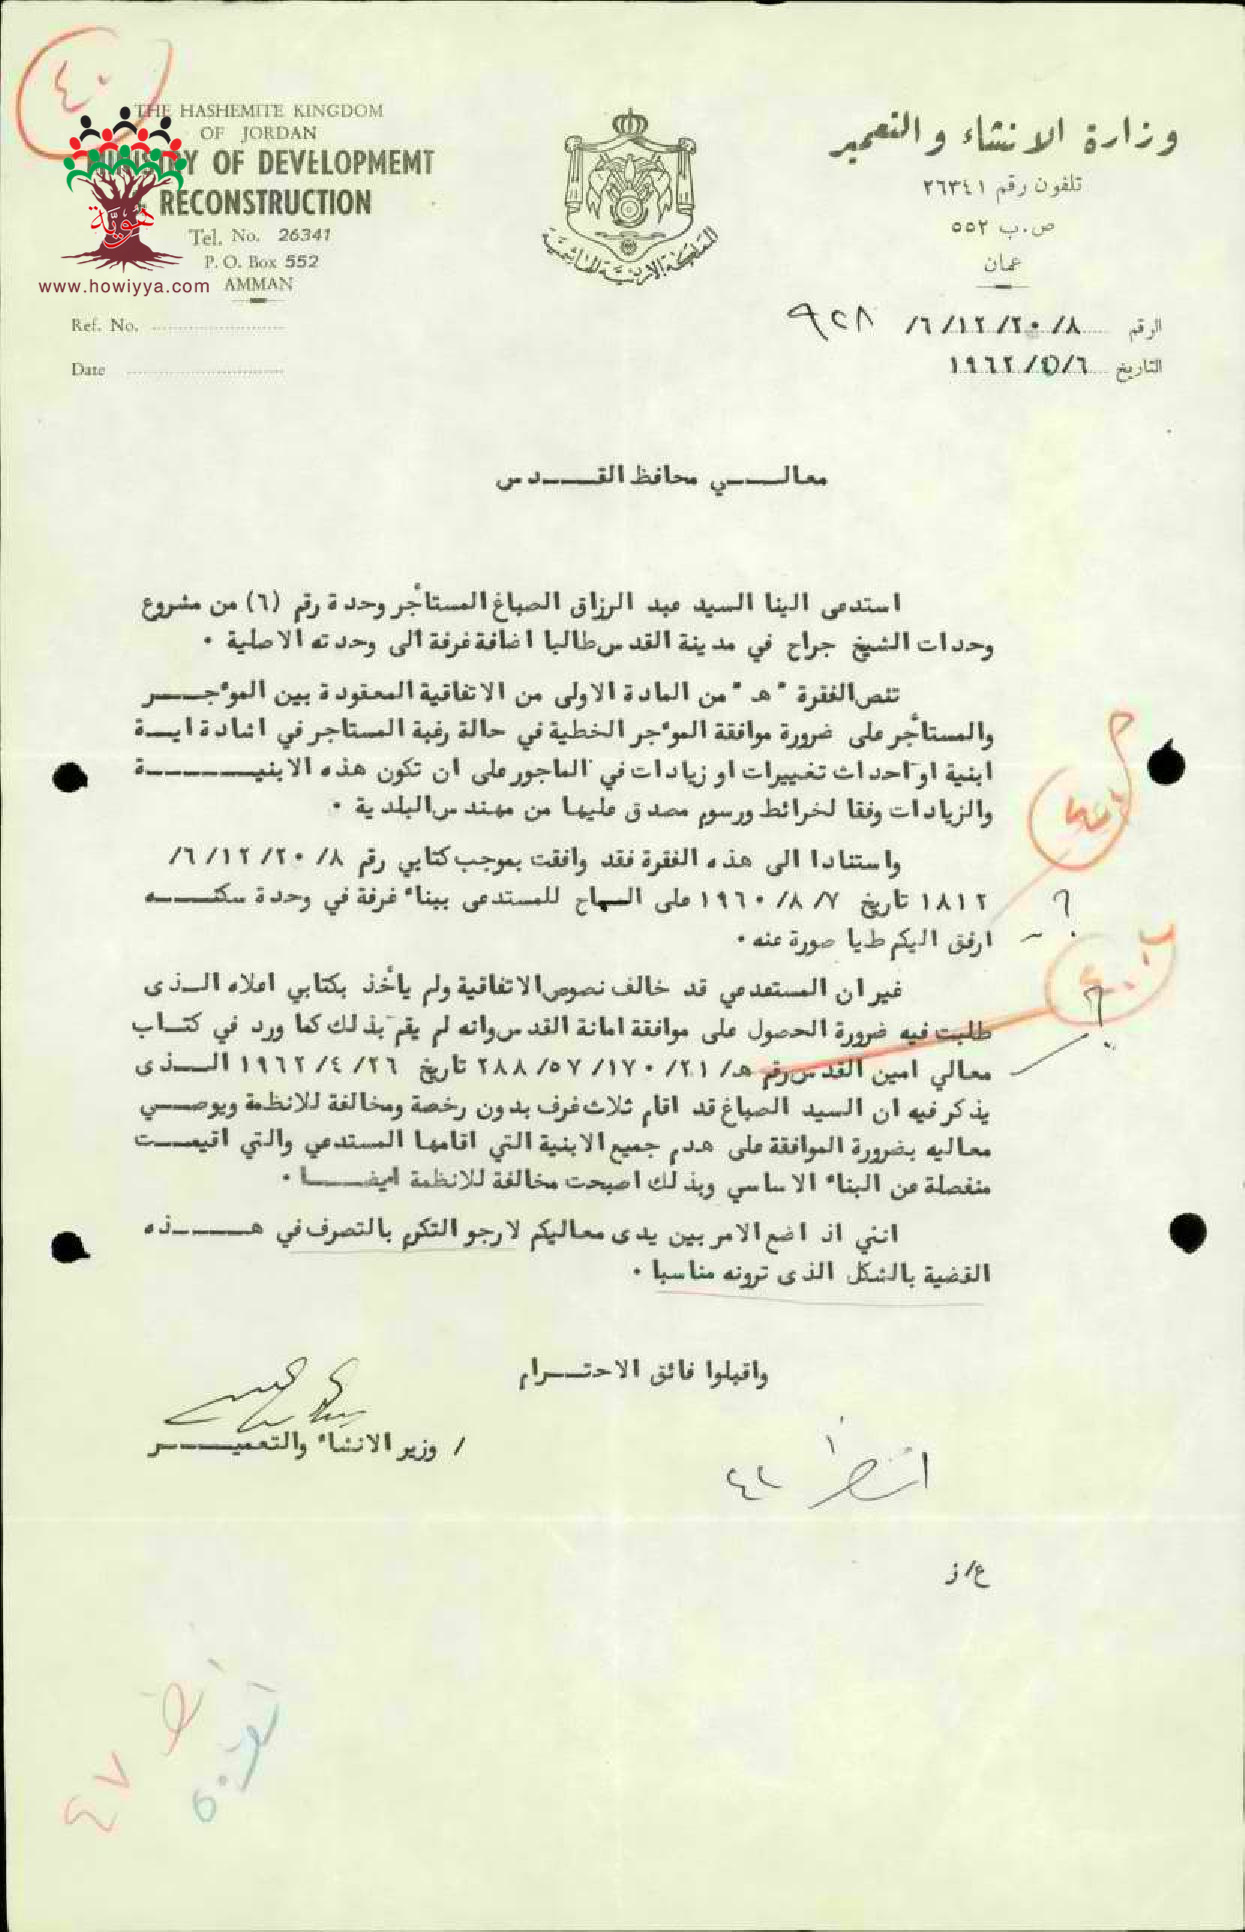 ٤٠
THE HASHEMITE KINGDOM
OF JORDAN
MINISTRY OF DEVELOPMEMT
RECONSTRUCTION
Tel. No. 26341
P. O. Box 552
AMMAN
هوية
www.howiyya.com
Ref. No.
Date
المملكة الاردنية الهاشمية
وزارة الانشاء والتعمير
تلفون رقم ٢٦٣٤١
ص.ب ٥٥٢
عمان
الرقم ٨/ ٢٠/ ١٢/ ٦/ ٩٢٨
التاريخ ٦/ ٥/ ١٩٦٢
معالـــي محافظ القـــدس
استدعى الينا السيد عبد الرزاق الصباغ المستأجر وحدة رقم (٦) من مشروع
وحدات الشيخ جراح في مدينة القدس طالبا اضافة غرفة الى وحدته الاصلية ٠
تنص الفقرة "هـ" من المادة الاولى من الاتفاقية المعقودة بين الموٴجـــر
والمستأجر على ضرورة موافقة الموٴجر الخطية في حالة رغبة المستاجر في اشادة ايــة
ابنية او احداث تغييرات او زيادات في الماجور على ان تكون هذه الابنيـــــة
والزيادات وفقا لخرائط ورسوم مصدق عليها من مهندس البلدية ٠
واستنادا الى هذه الفقرة فقد وافقت بموجب كتابي رقم ٨/ ٢٠/ ١٢/ ٦/
١٨١٢ تاريخ ٧/ ٨/ ١٩٦٠ على السماح للمستدعى ببناء غرفة في وحدة سكنـــه
ارفق اليكم طيا صورة عنه ٠
غير ان المستدعي قد خالف نصوص الاتفاقية ولم يأخذ بكتابي اعلاه الــذى
طلبت فيه ضرورة الحصول على موافقة امانة القدس وانه لم يقم بذلك كما ورد في كتــاب
معالي امين القدس رقم هـ/ ٢١/ ١٧٠/ ٥٧/ ٢٨٨ تاريخ ٢٦/ ٤/ ١٩٦٢ الــذى
يذكر فيه ان السيد الصباغ قد اقام ثلاث غرف بدون رخصة ومخالفة للانظمة ويوصــي
معاليه بضرورة الموافقة على هدم جميع الابنية التي اقامها المستدعي والتي اقيمــت
منفصلة عن البناء الاساسي وبذلك اصبحت مخالفة للانظمة ايضـــا ٠
انني اذ اضع الامر بين يدى معاليكم لارجو التكرم بالتصرف في هــــذه
القضية بالشكل الذى ترونه مناسبا ٠
واقبلوا فائق الاحتـــرام
/ وزير الانشاء والتعميـــــر
٤٢
ع/ز
٤٧
٥٠